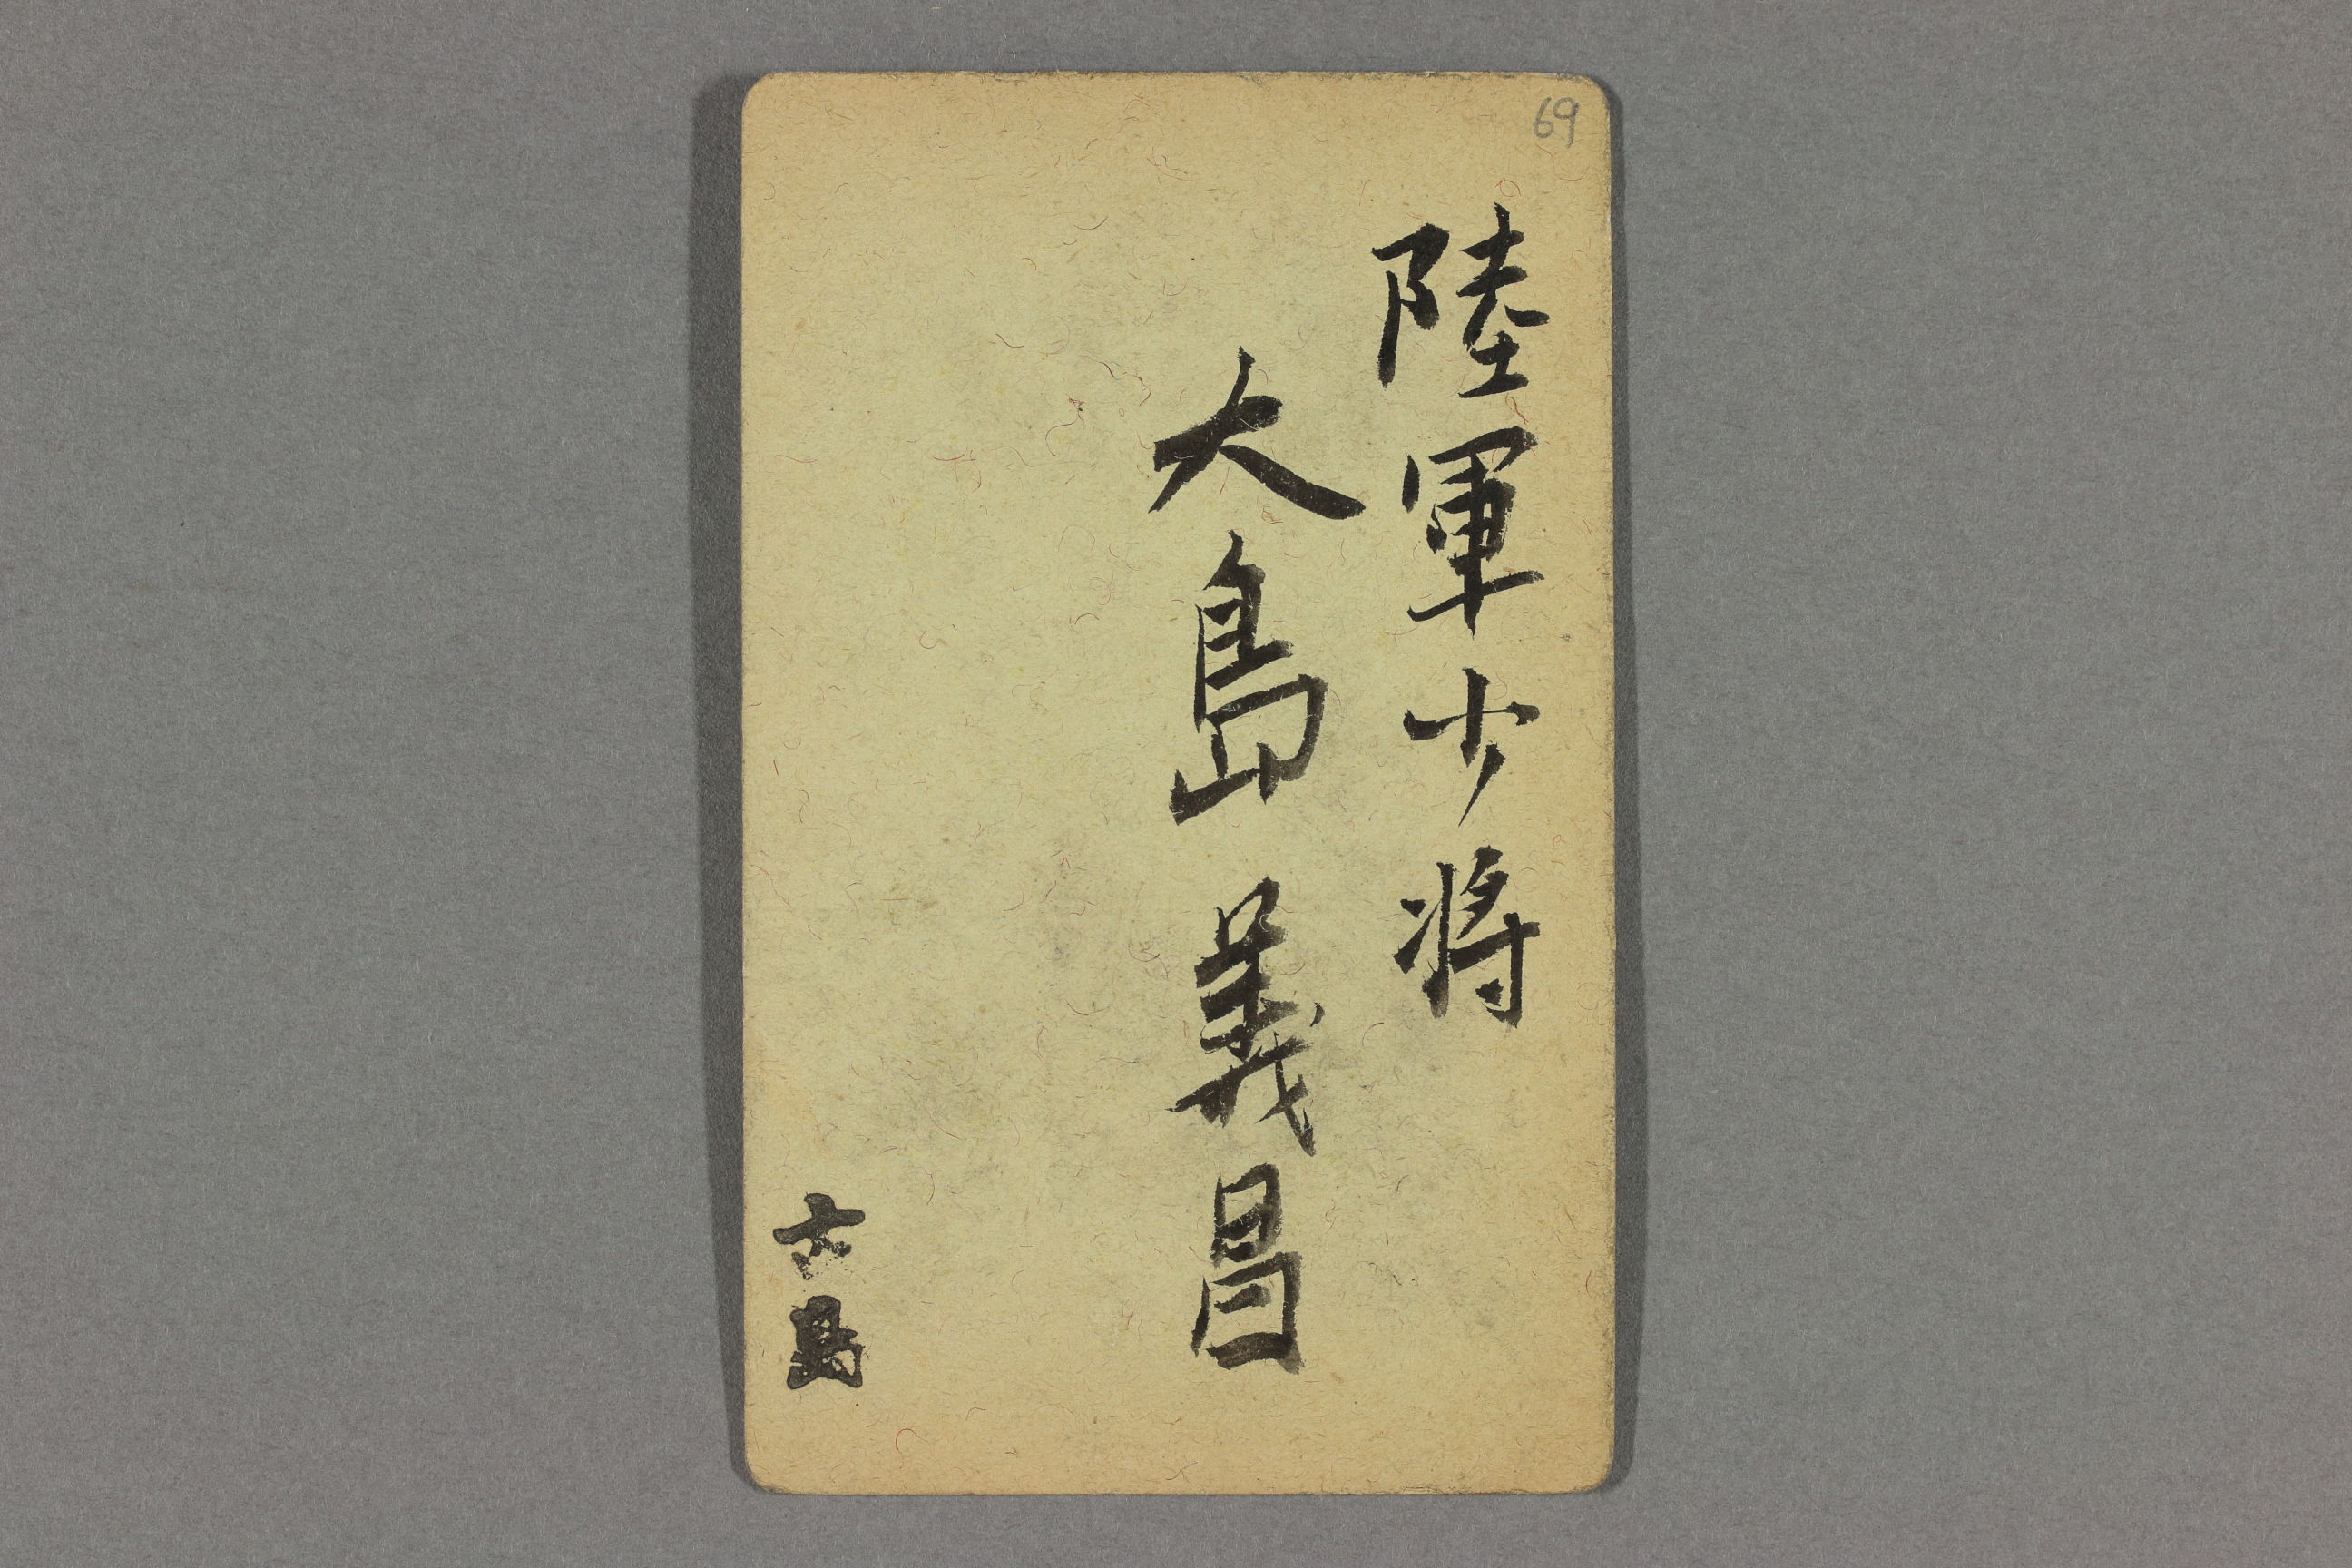 69
陸軍少将
大島義昌
大島